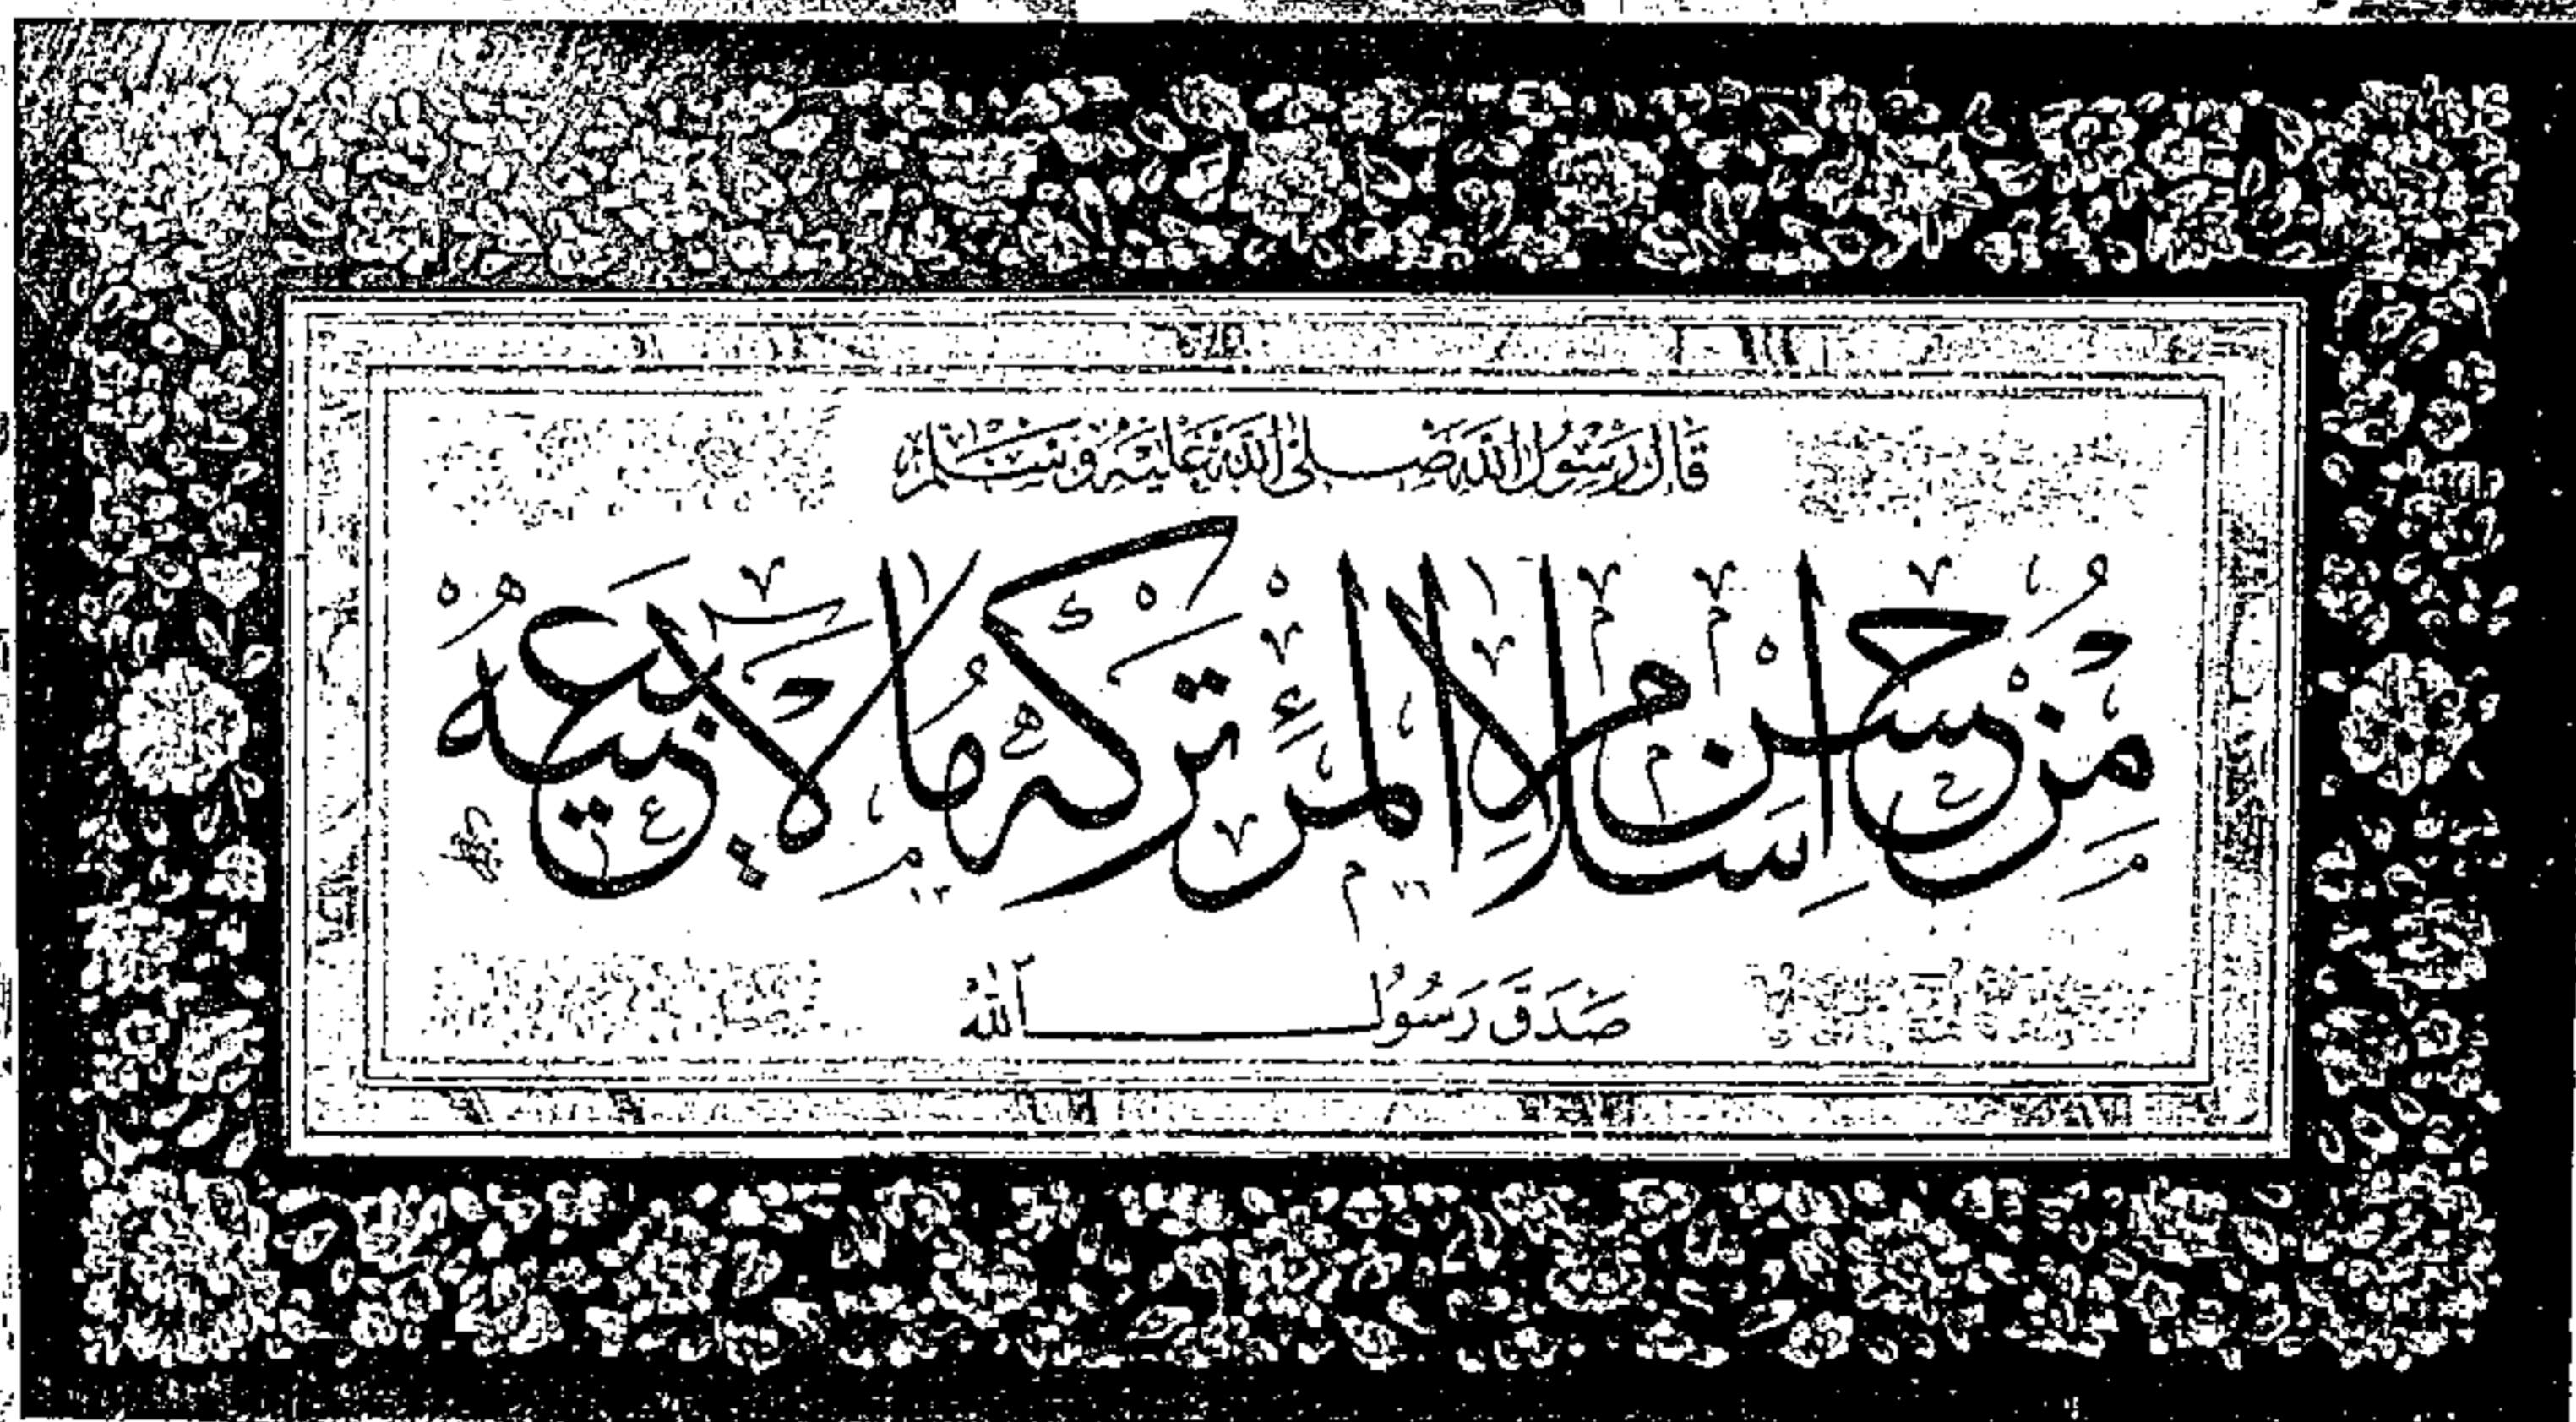 قَالَ رَسُولُ اللّٰهِ صَلَّى اللّٰهُ عَلَيْهِ وَسَلَّمَ
مِنْ حُسْنِ اِسْلَامِ الْمَرْءِ تَرْكُهُ مَا لَا يَعْنِيهِ
١٣ ٧٦
صَدَقَ رَسُولُ اللّٰه